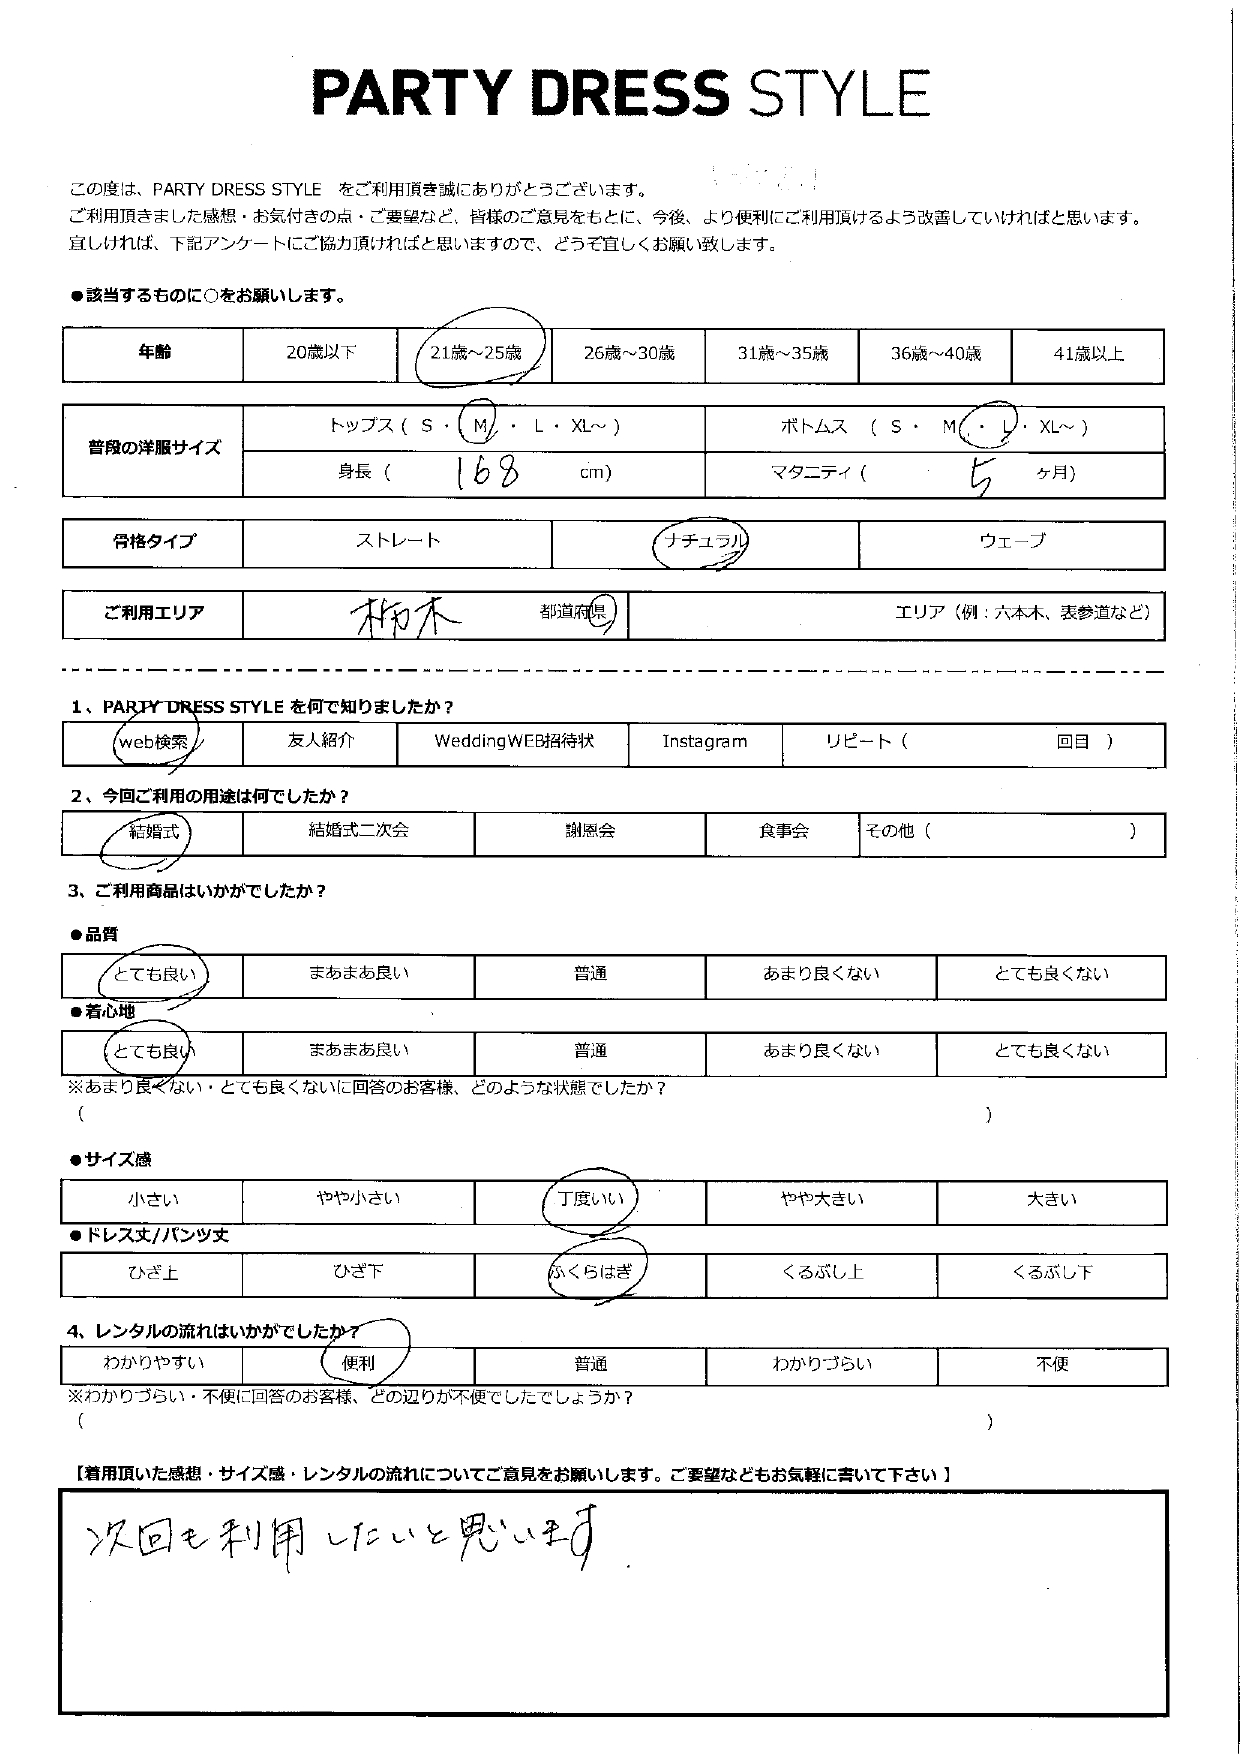 PARTY DRESS STYLE
この度は、PARTY DRESS STYLE をご利用頂き誠にありがとうございます。
ご利用頂きました感想・お気付きの点・ご要望など、皆様のご意見をもとに、今後、より便利にご利用頂けるよう改善していければと思います。
宜しければ、下記アンケートにご協力頂ければと思いますので、どうぞ宜しくお願い致します。
●該当するものに○をお願いします。
年齢 20歳以下 21歳～25歳 26歳～30歳 31歳～35歳 36歳～40歳 41歳以上
普段の洋服サイズ トップス ( S ・ M ・ L ・ XL～ ) ボトムス ( S ・ M ・ L ・ XL～ )
身長 ( 168 cm) マタニティ ( 5 ヶ月)
骨格タイプ ストレート ナチュラル ウェーブ
ご利用エリア 栃木 都道府県 エリア (例：六本木、表参道など)
1、PARTY DRESS STYLE を何で知りましたか？
web検索 友人紹介 WeddingWEB招待状 Instagram リピート ( 回目 )
2、今回ご利用の用途は何でしたか？
結婚式 結婚式二次会 謝恩会 食事会 その他 ( )
3、ご利用商品はいかがでしたか？
●品質
とても良い まあまあ良い 普通 あまり良くない とても良くない
●着心地
とても良い まあまあ良い 普通 あまり良くない とても良くない
※あまり良くない・とても良くないに回答のお客様、どのような状態でしたか？
( )
●サイズ感
小さい やや小さい 丁度いい やや大きい 大きい
●ドレス丈/パンツ丈
ひざ上 ひざ下 ふくらはぎ くるぶし上 くるぶし下
4、レンタルの流れはいかがでしたか？
わかりやすい 便利 普通 わかりづらい 不便
※わかりづらい・不便に回答のお客様、どの辺りが不便でしたでしょうか？
( )
【着用頂いた感想・サイズ感・レンタルの流れについてご意見をお願いします。ご要望などもお気軽に書いて下さい 】
次回も利用したいと思います